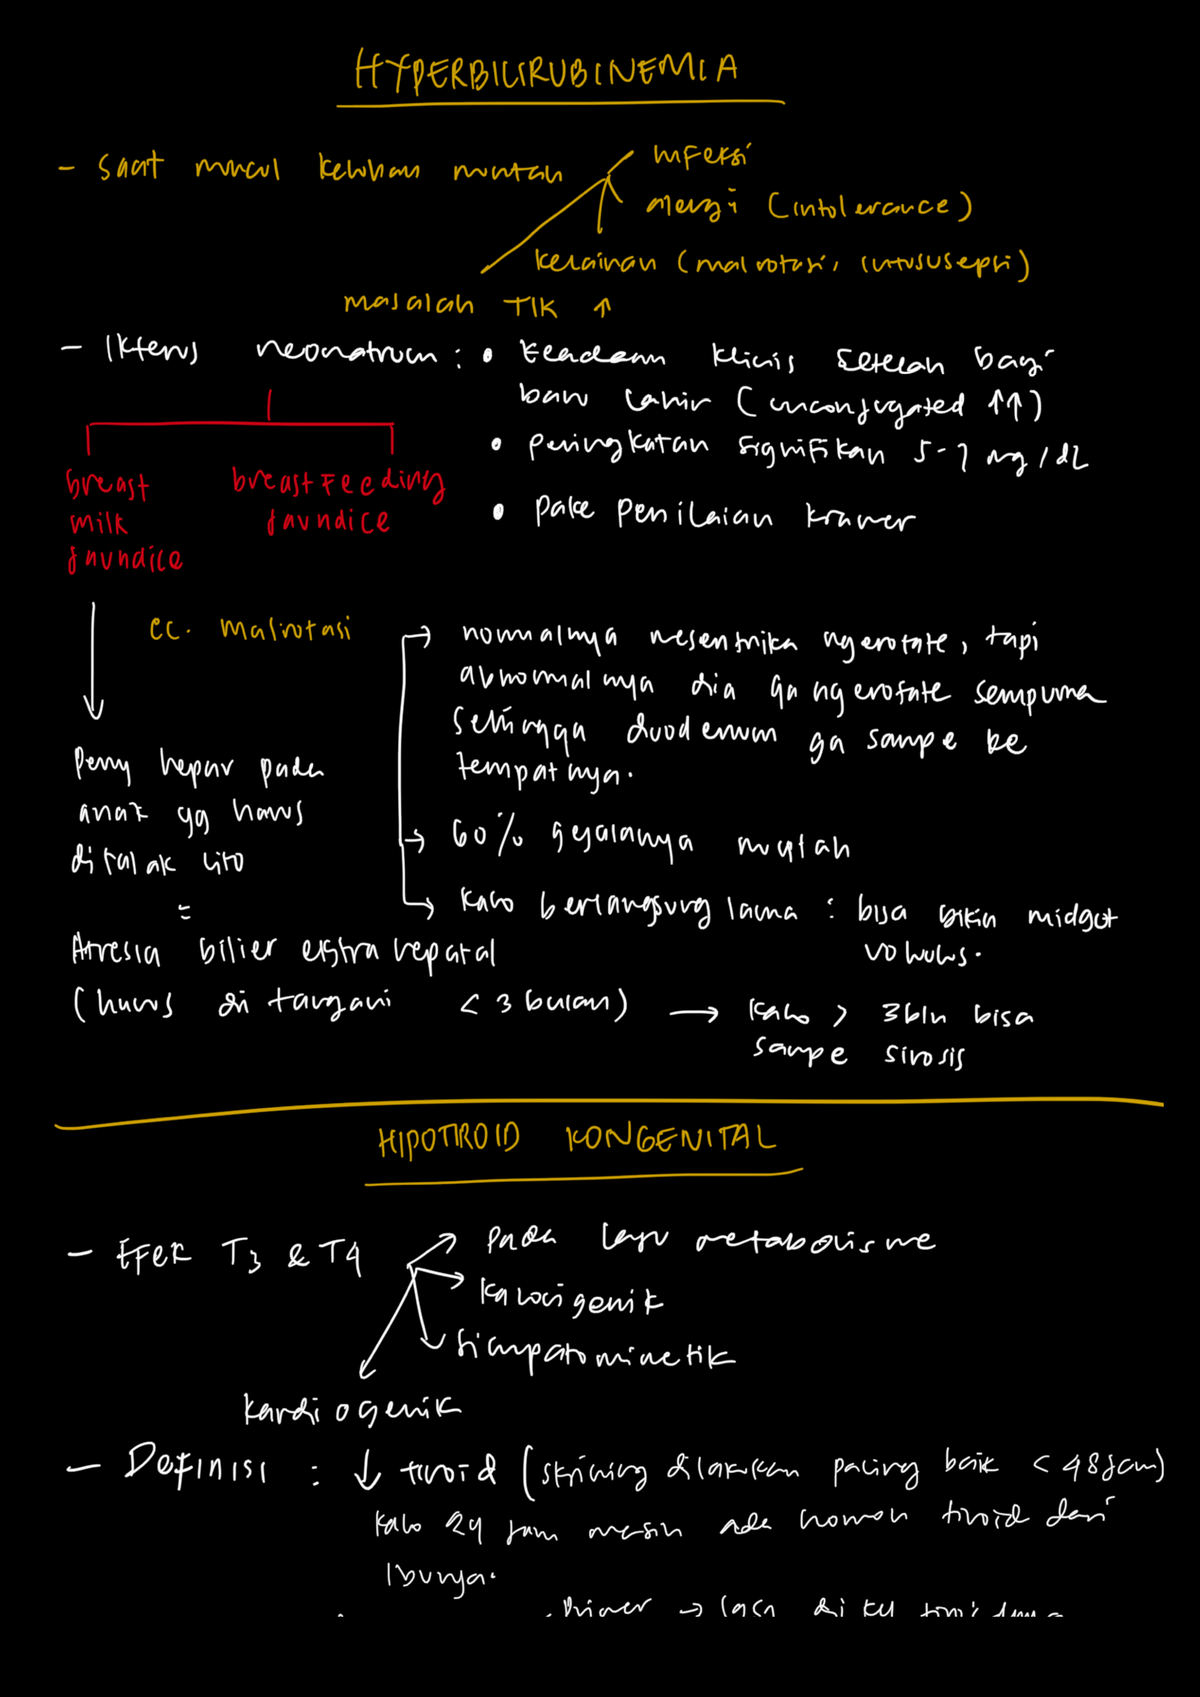 HYPERBILIRUBINEMIA
- saat muncul keluhan muntah
infeksi
alergi (intolerance)
kelainan (malrotasi, intususepsi)
masalah TIK ↑
- Ikterus neonatrum : • keadaan klinis setelah bayi
baru lahir (unconjugated ↑↑)
• peningkatan signifikan 5-7 mg/dL
• pake penilaian kramer
breast
milk
jaundice
breastfeeding
jaundice
ec. Malrotasi
→ normalnya mesentrika ngerotate, tapi
abnormalnya dia ga ngerotate sempurna
sehingga duodenum ga sampe ke
tempatnya.
→ 60% gejalanya muntah
→ kalo berlangsung lama : bisa bikin midgut
volvulus.
Peny hepar pada
anak yg harus
ditolak cito
=
Atresia bilier ekstra hepatal
(harus di tangani < 3 bulan) → kalo > 3bln bisa
sampe sirosis
HIPOTIROID KONGENITAL
- Efek T3 & T4
pada laju metabolisme
kalorigenik
simpatomimetik
kardiogenik
- Definisi : ↓ tiroid (skrining dilakukan paling baik < 48jam)
kalo 24 jam masih ada hormon tiroid dari
ibunya.